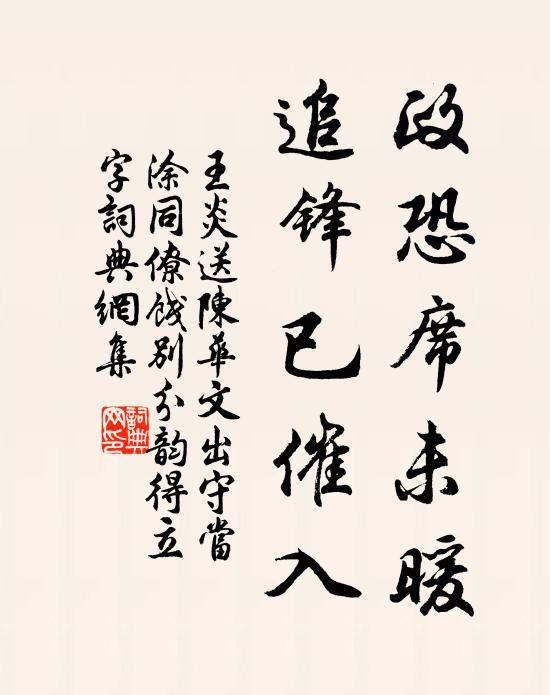 政恐席未暖
追锋已催入
王炎送陳華文出守當
涂同僚餞別分韵得立
字詞典網集
詞典
网印